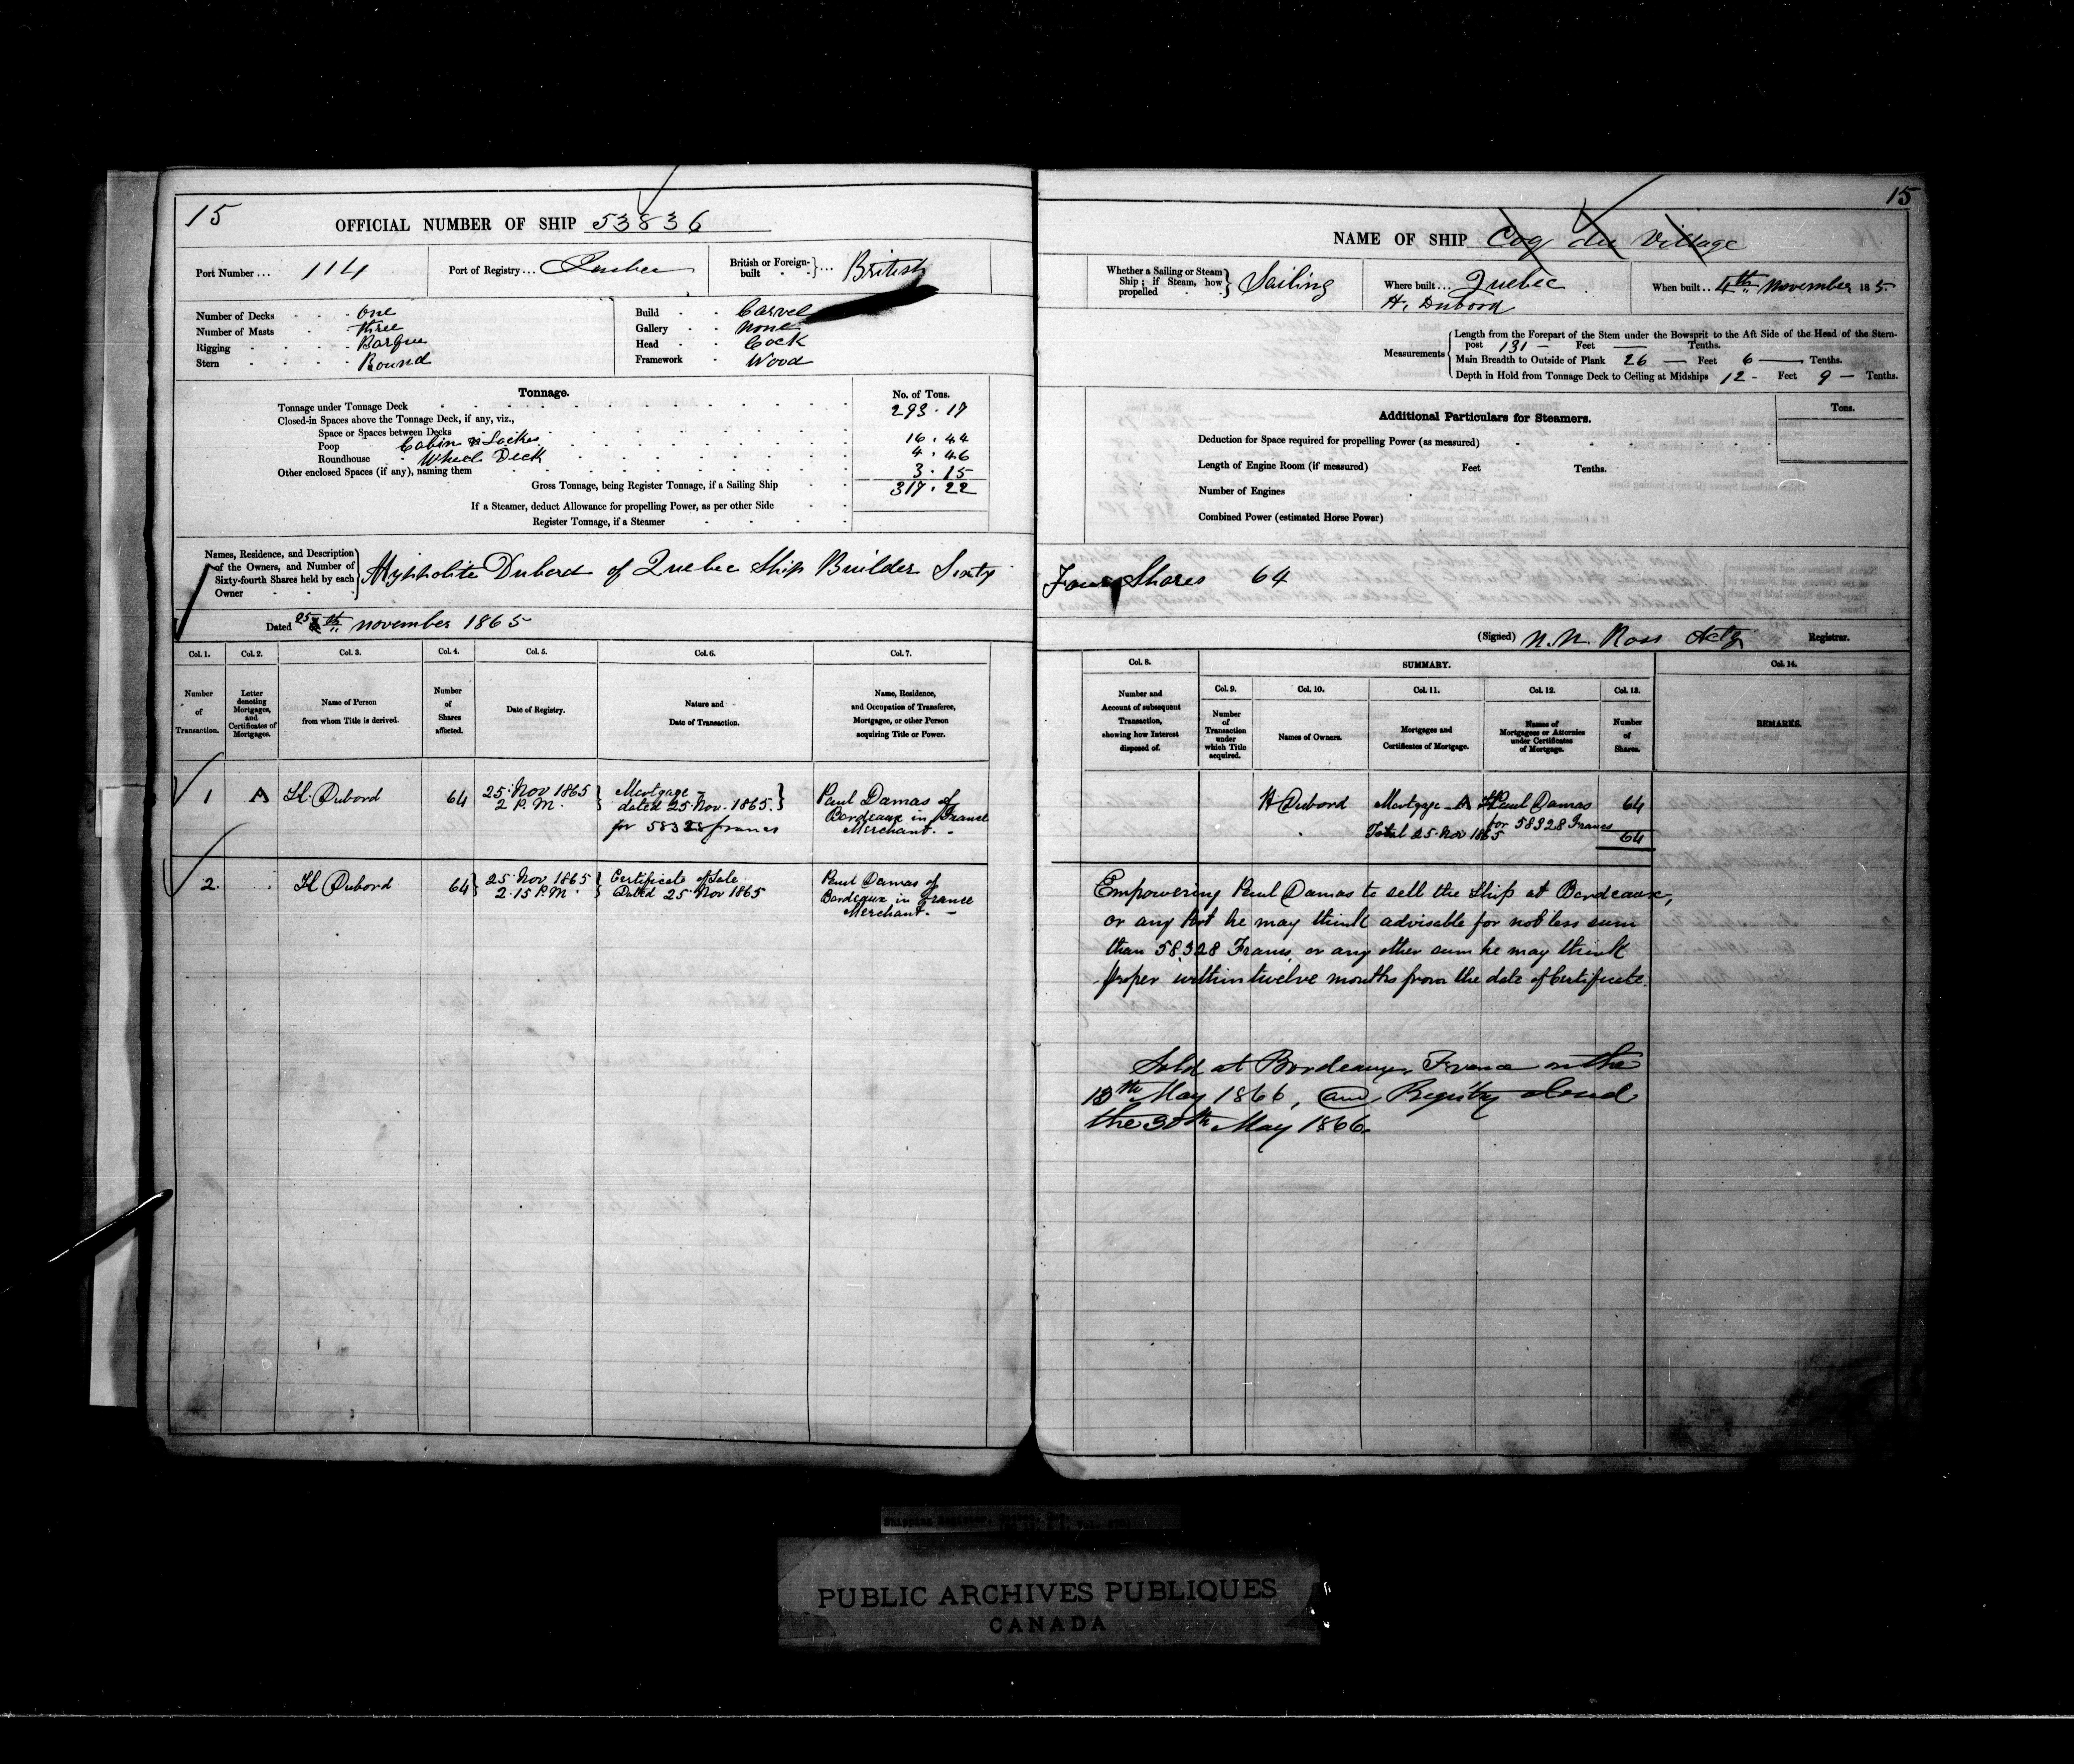 15
OFFICIAL NUMBER OF SHIP 53836
Port Number ... 114
Port of Registry ... Quebec
British or Foreign-built ... British
Number of Decks - - - One
Number of Masts - - three
Rigging - - - - Barque
Stern - - - - Round
Build - - Carvel
Gallery - - None
Head - - Cock
Framework - Wood
Tonnage.
No. of Tons.
Tonnage under Tonnage Deck 293.17
Closed-in Spaces above the Tonnage Deck, if any, viz.,
Space or Spaces between Decks
Poop Cabin & 16.44
Roundhouse Wheel Deck 4.46
Other enclosed Spaces (if any), naming them 3.15
Gross Tonnage, being Register Tonnage, if a Sailing Ship 317.22
If a Steamer, deduct Allowance for propelling Power, as per other Side
Register Tonnage, if a Steamer
Names, Residence, and Description
of the Owners, and Number of
Sixty-fourth Shares held by each
Owner
Hyppolite Dubord of Quebec Ship Builder Sixty
Dated 25th November 1865
Col. 1. Col. 2. Col. 3. Col. 4. Col. 5. Col. 6. Col. 7.
Number of Transaction.
Letter denoting Mortgages, and Certificates of Mortgages.
Name of Person from whom Title is derived.
Number of Shares affected.
Date of Registry.
Nature and Date of Transaction.
Name, Residence, and Occupation of Transferee, Mortgagee, or other Person acquiring Title or Power.
1 A H. Dubord 64 25 Nov 1865 2 P.M.
Mortgage
dated 25 Nov. 1865
for 58328 francs
Paul Damas of
Bordeaux in France
Merchant. -
2. H Dubord 64 25 Nov 1865 2.15 P.M.
Certificate of Sale
Dated 25 Nov 1865
Paul Damas of
Bordeaux in France
Merchant. -
15
NAME OF SHIP Coq du Village
Whether a Sailing or Steam
Ship; if Steam, how
propelled
Sailing
Where built ... Quebec
H. Dubord
When built .. 4th November 1865
Measurements
Length from the Forepart of the Stem under the Bowsprit to the Aft Side of the Head of the Stern-
post 131 - Feet — Tenths.
Main Breadth to Outside of Plank 26 — Feet 6 — Tenths.
Depth in Hold from Tonnage Deck to Ceiling at Midships 12 - Feet 9 — Tenths.
Additional Particulars for Steamers.
Tons.
Deduction for Space required for propelling Power (as measured)
Length of Engine Room (if measured) Feet Tenths.
Number of Engines
Combined Power (estimated Horse Power)
Four Shares 64
(Signed) N. N. Ross Actg Registrar.
Col. 8. SUMMARY. Col. 14.
Col. 9. Col. 10. Col. 11. Col. 12. Col. 13.
Number and Account of subsequent Transaction, showing how Interest disposed of.
Number of Transaction under which Title acquired.
Names of Owners.
Mortgages and Certificates of Mortgage.
Names of Mortgagees or Attornies under Certificates of Mortgage.
Number of Shares.
REMARKS.
H Dubord Mortgage A Paul Damas 64
for 58328 Francs
Total 25 Nov 1865 64
Empowering Paul Damas to sell the Ship at Bordeaux,
or any Port he may think advisable for not less sum
than 58328 Francs, or any other sum he may think
proper within twelve months from the date of Certificate.
Sold at Bordeaux, France on the
May 1866, and Registry closed
the 30th May 1866.
Shipping Register, Quebec, Que.
PUBLIC ARCHIVES PUBLIQUES
CANADA